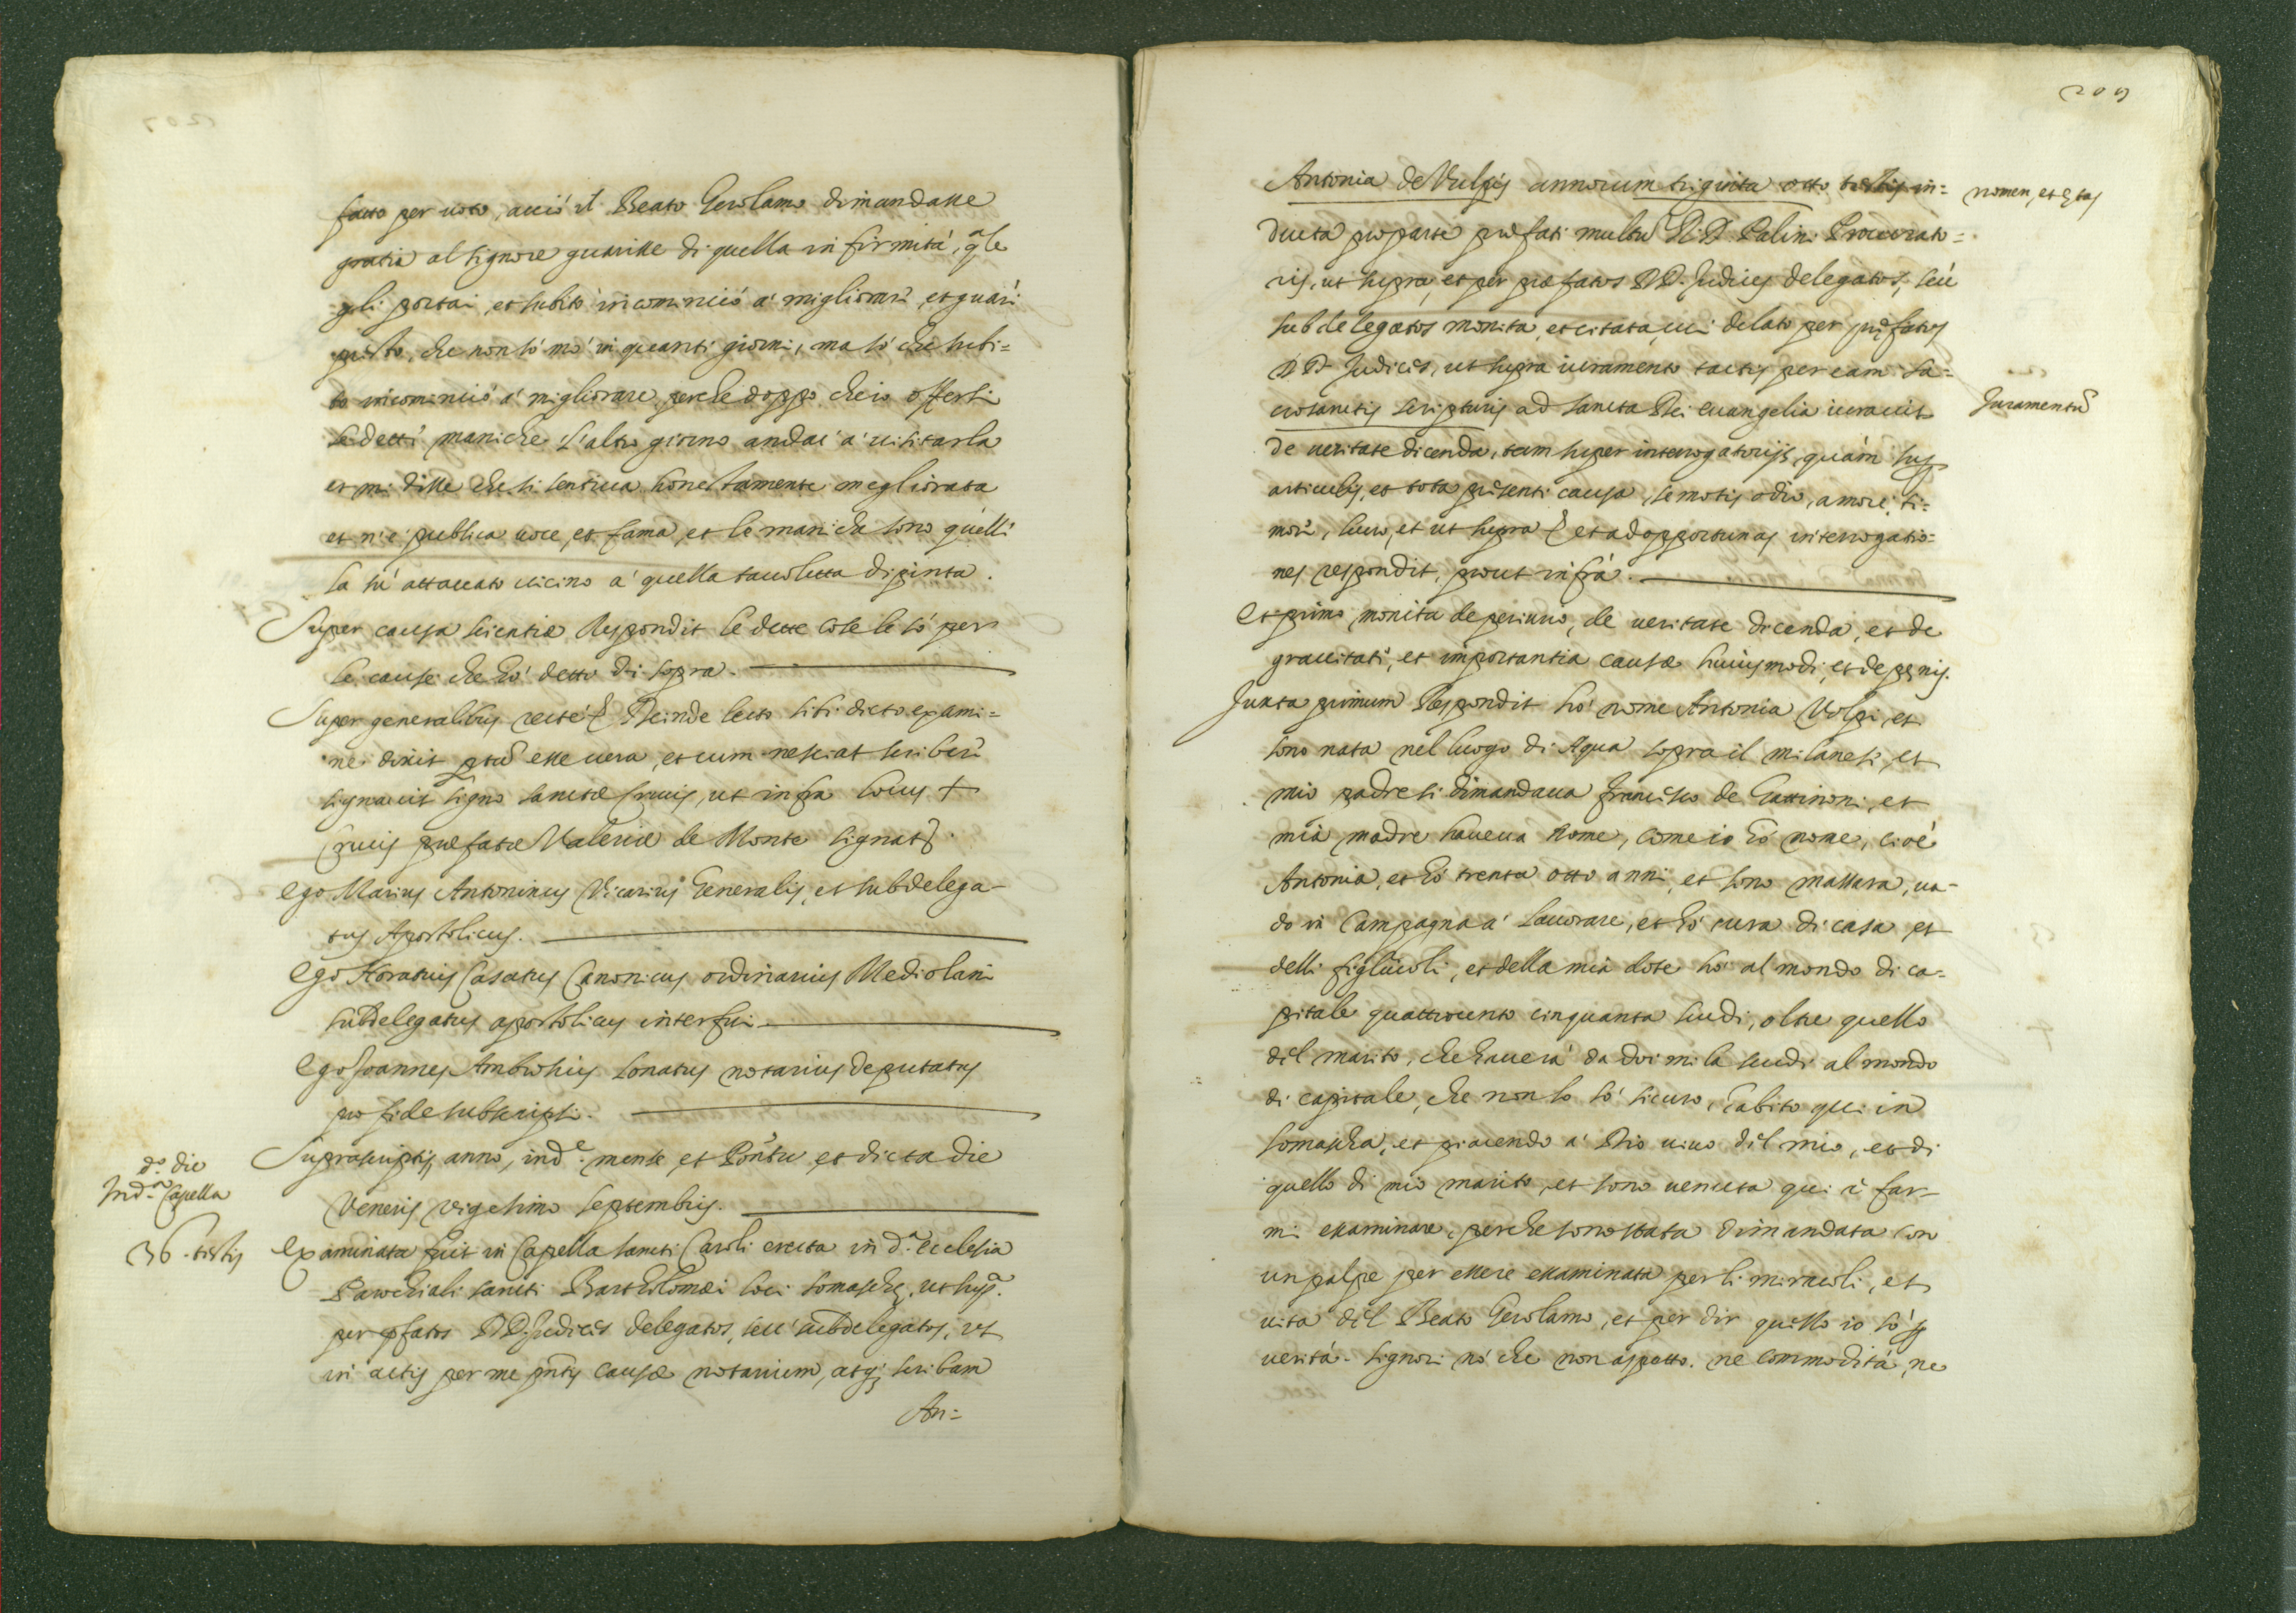 fatto per uoto, acciò il Beato Gerolamo dimandasse
gratia al signore guarisse di quella infirmità, qle
gli portai, et subito incominciò a' migliorare, et guarì
presto, che non sò mò in quanti giorni, ma sò che subi=
to incominciò a' migliorare, perche doppo che io offersi
le dette maniche l'altro giorno andai a' uisitarla
et mi disse che si sentiua honestamente megliorata
et n'è publica uoce, et fama, et le maniche sono quelle
la sù attaccato uicino a' quella tauoletta dipinta.
Super causa scientiæ Respondit le dette cose le sò per
le cause che hò detto di sopra.
Super generalibus recte Deinde lecto sibi dicto exami=
ne dixit esse uera, et cum nesciat scribere
signauit signo sanctæ Crucis, ut infra locus +
Crucis præfatæ Valeriæ de Monte signat.
Ego Marius Antoninus Vicarius Generalis, et subdelega-
tus Apostolicus.
Ego Horatius Casatus Canonicus ordinarius Mediolani
subdelegatus apostolicus interfui
Ego Joannes Ambrosius Lonatus notarius deputatus
pro fide subscripsi.
d.o die
In d.a Capella
Suprascriptis anno, ind.e mense et Pontu et dicta die
Veneris vigesimo septembris.
36. testis
Examinata fuit in Capella sancti Caroli erecta in d.a ecclesia
Parochiali sancti Bartholomæi loci somaschę, ut sup.a
per pfatos DD. Judices delegatos, seu' subdelegatos, ut
in actis per me pntis causæ notarium, atq; scribam
An=
209
Antonia de Vulpis annorum triginta otto testis in=
nomen, et ętas
ducta pro parte præfati multu R. D. Palini Procurato=
ris, ut supra, et per præfatos DD. Judices delegatos, seu'
subdelegatos monita, et citata, cui delato per pręfatos
DD. Judices, ut supra iuramento tactis per eam sa=
crosanctis scripturis ad sancta Dei euangelia iurauit
Juramentu
de ueritate dicenda, tam super interrogatorijs, quàm sup
articulis, et tota præsenti causa, semotis odio, amore, ti=
more, lucro, et ut supra et ad opportunas interrogatio=
nes respondit, prout infra.
Et primo monita de periurio, de ueritate dicenda, et de
grauitate, et importantia causæ huiusmodi, et de pęnis.
Juxta primum Respondit hò nome Antonia Volpi, et
sono nata nel luogo di Aqua sopra il milanese, et
mio padre si dimandaua Francesco de Gattinoni, et
mia madre haueua nome, come io hò nome, cioè
Antonia, et hò trenta otto anni, et sono massara, ua-
do in Campagna a' lauorare, et hò cura di casa, et
delli figliuoli, et della mia dote hò al mondo di ca-
pitale quattrocento cinquanta scudi, oltre quello
del marito, che hauerà da doi mila scudi al mondo
di capitale, che non lo sò sicuro, habito qui in
somascha, et piacendo a' Dio uiuo del mio, et di
quello di mio marito, et sono uenuta qui à far-
mi examinare, perche sono stata dimandata con
un polpe per essere examinata per li miracoli, et
uita del Beato Gerolamo, et per dir quello io sò p
uerità. Signori nò che non aspetto. ne commodità, ne